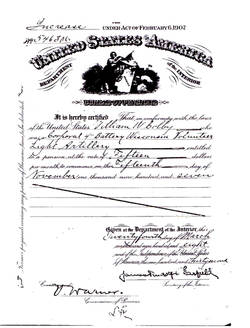 Increase
UNDER ACT OF FEBRUARY 6, 1907
No 546,326
UNITED STATES OF AMERICA
DEPARTMENT OF THE INTERIOR
BUREAU OF PENSIONS
It is hereby certified That in conformity with the laws
of the United States William W. Colby who
was Corporal 4 Battery Wisconsin Volunteer
Light Artillery is entitled
to a pension at the rate of Fifteen dollars
per month to commence on the Fifteenth day of
November one thousand nine hundred and seven
Given at the Department of the Interior this
Twenty fourth day of March
one thousand nine hundred and eight
and of the Independence of the United States
of America the one hundred and thirty second
V. Warner